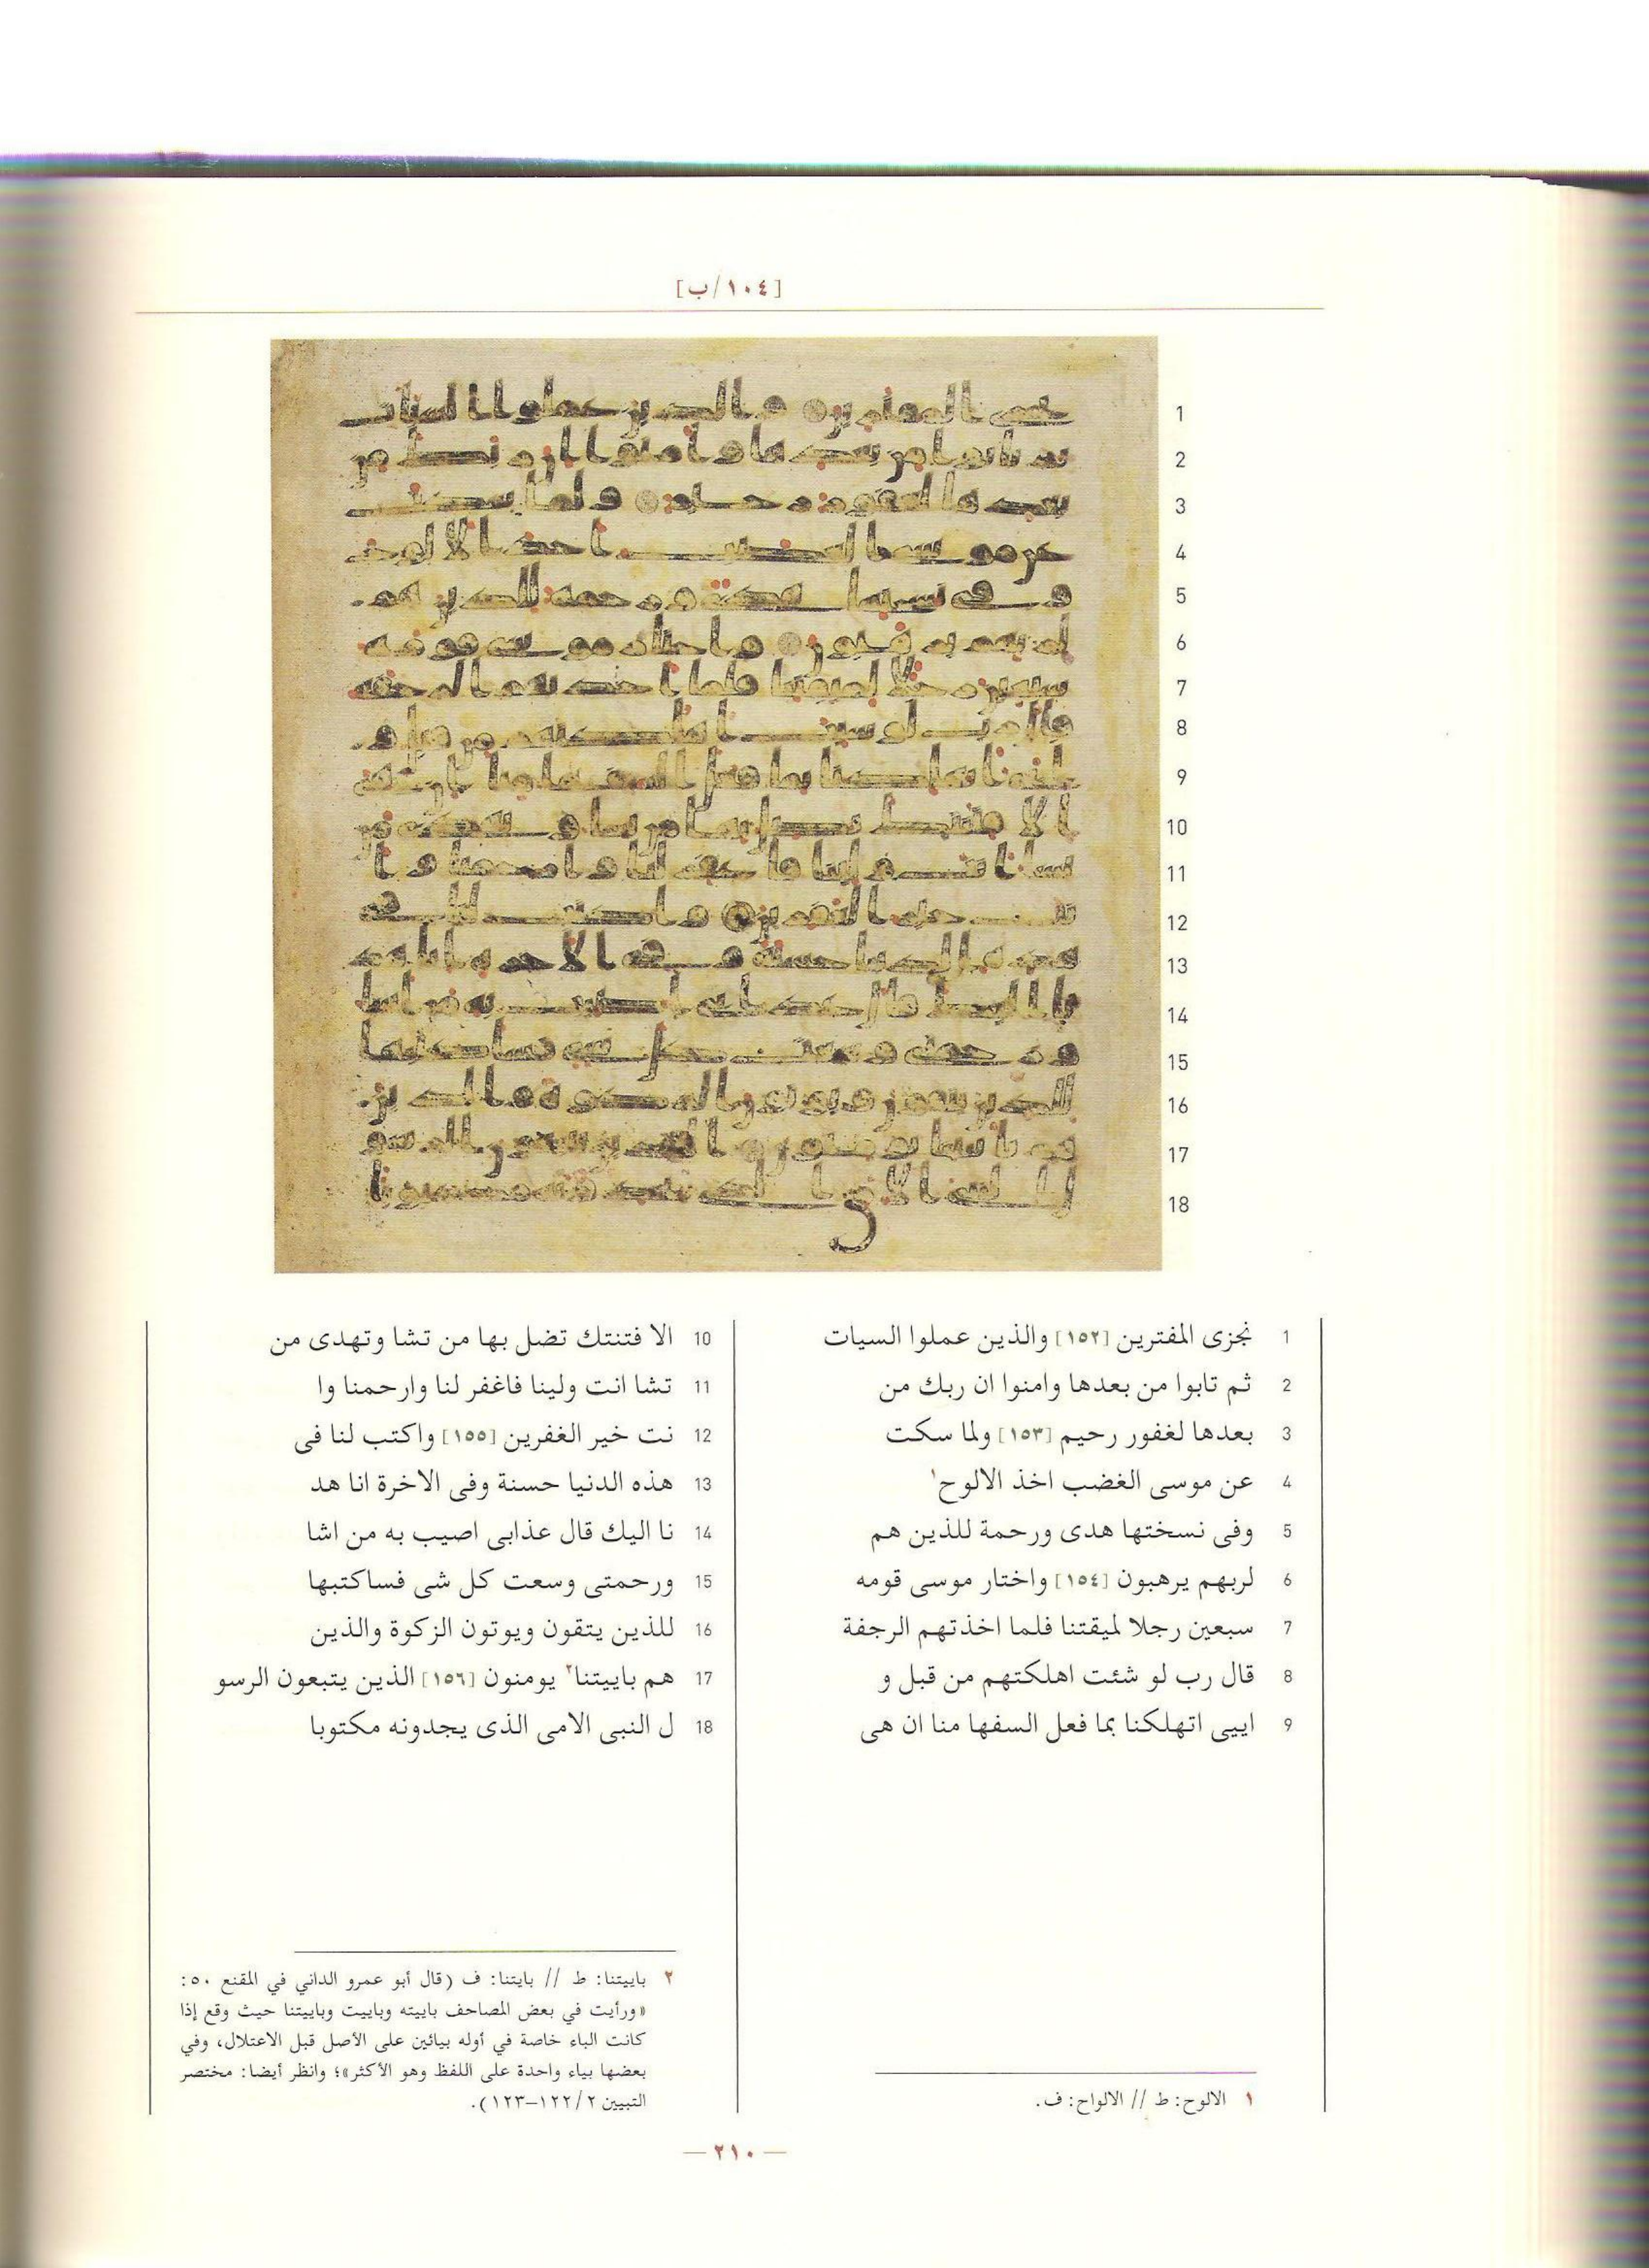 [١٠٤/ب]
1 نجزى المفترين [١٥٢] والذين عملوا السيات
2 ثم تابوا من بعدها وامنوا ان ربك من
3 بعدها لغفور رحيم [١٥٣] ولما سكت
4 عن موسى الغضب اخذ الالوح١
5 وفى نسختها هدى ورحمة للذين هم
6 لربهم يرهبون [١٥٤] واختار موسى قومه
7 سبعين رجلا لميقتنا فلما اخذتهم الرجفة
8 قال رب لو شئت اهلكتهم من قبل و
9 اييى اتهلكنا بما فعل السفها منا ان هى
10 الا فتنتك تضل بها من تشا وتهدى من
11 تشا انت ولينا فاغفر لنا وارحمنا وا
12 نت خير الغفرين [١٥٥] واكتب لنا فى
13 هذه الدنيا حسنة وفى الاخرة انا هد
14 نا اليك قال عذابى اصيب به من اشا
15 ورحمتى وسعت كل شى فساكتبها
16 للذين يتقون ويوتون الزكوة والذين
17 هم باييتنا٢ يومنون [١٥٦] الذين يتبعون الرسو
18 ل النبى الامى الذى يجدونه مكتوبا
١ الالوح: ط // الالواح: ف.
٢ باييتنا: ط // بايتنا: ف (قال أبو عمرو الداني في المقنع ٥٠:
«ورأيت في بعض المصاحف باييته وباييت وباييتنا حيث وقع إذا
كانت الباء خاصة في أوله بيائين على الأصل قبل الاعتلال، وفي
بعضها بياء واحدة على اللفظ وهو الأكثر»؛ وانظر أيضا: مختصر
التبيين ١٢٢/٢–١٢٣).
— ٢١٠ —